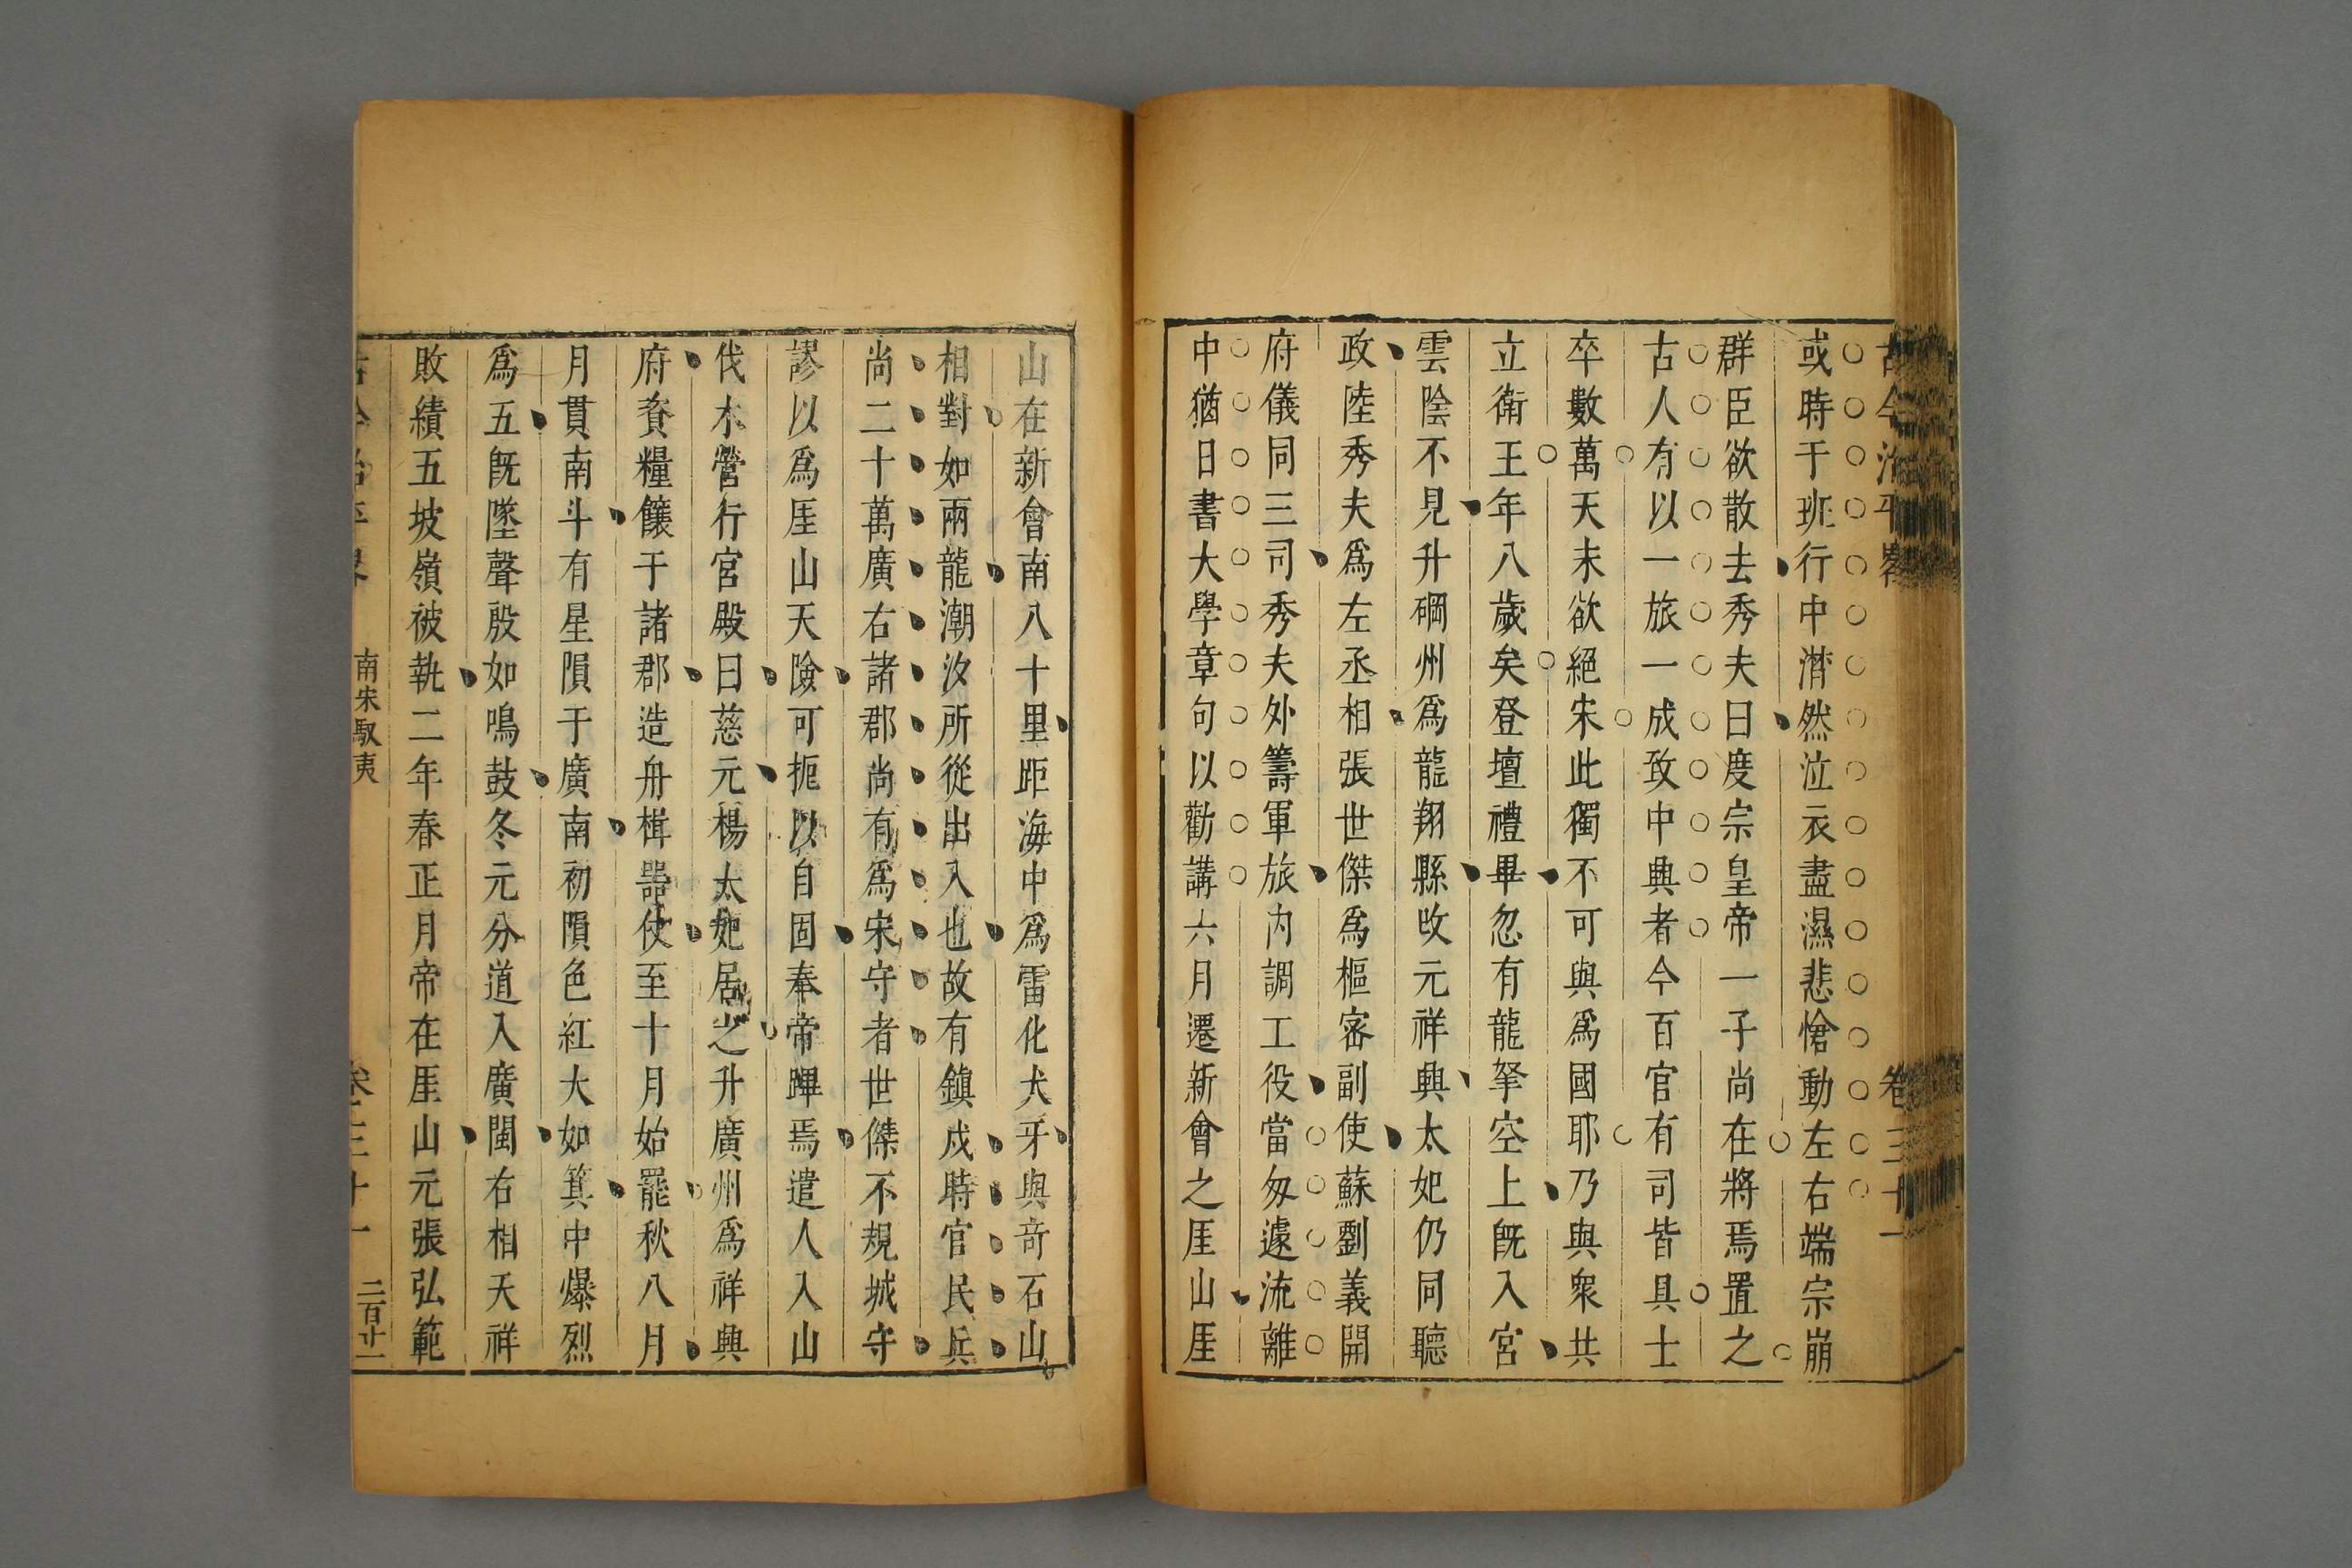 古今治平畧 卷三十一
或時于班行中潸然泣衣盡濕悲愴動左右端宗崩
群臣欲散去秀夫曰度宗皇帝一子尚在將焉置之
古人有以一旅一成致中興者今百官有司皆具士
卒數萬天未欲絕宋此獨不可與爲國耶乃與衆共
立衛王年八歲矣登壇禮畢忽有龍拏空上既入宮
雲陰不見升碙州爲龍翔縣改元祥興太妃仍同聽
政陸秀夫爲左丞相張世傑爲樞密副使蘇劉義開
府儀同三司秀夫外籌軍旅内調工役當匆遽流離
中猶日書大學章句以勸講六月遷新會之厓山厓
山在新會南八十里距海中爲雷化犬牙與竒石山
相對如兩龍潮汐所從出入也故有鎮戍時官民兵
尚二十萬廣右諸郡尚有爲宋守者世傑不規城守
謬以爲厓山天險可扼以自固奉帝蹕焉遣人入山
伐木營行宮殿曰慈元楊太妃居之升廣州爲祥興
府資糧餼于諸郡造舟楫器仗至十月始罷秋八月
月貫南斗有星隕于廣南初隕色紅大如箕中爆烈
爲五既墜聲殷如鳴鼓冬元分道入廣閩右相天祥
敗績五坡嶺被執二年春正月帝在厓山元張弘範
古今治平畧 南宋馭夷 卷三十一